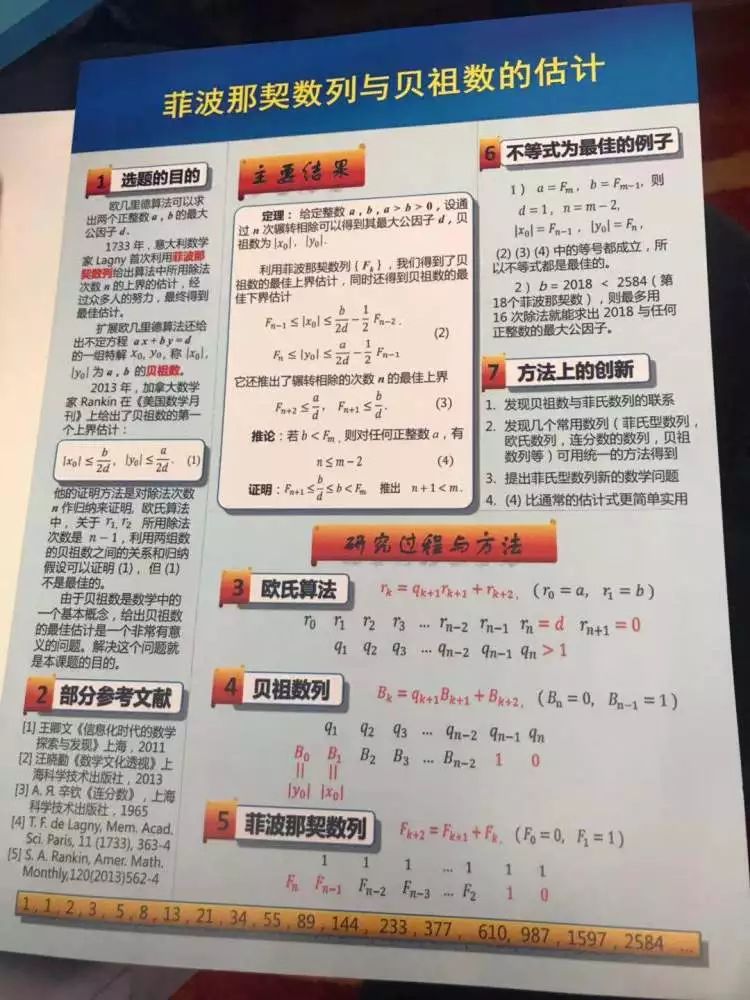 菲波那契数列与贝祖数的估计
1 选题的目的
欧几里德算法可以求
出两个正整数 a , b 的最大
公因子 d .
1733 年 , 意大利数学
家 Lagny 首次利用菲波那
契数列给出算法中所用除法
次数 n 的上界的估计 , 经
过众多人的努力 , 最终得到
最佳估计。
扩展欧几里德算法还给
出不定方程 ax+by=d
的一组特解 x₀, y₀, 称 |x₀|,
|y₀| 为 a , b 的贝祖数。
2013 年 , 加拿大数学
家 Rankin 在《美国数学月
刊》上给出了贝祖数的第一
个上界估计 :
|x₀| ≤ b/2d , |y₀| ≤ a/2d . (1)
他的证明方法是对除法次数
n 作归纳来证明. 欧氏算法
中 , 关于 r₁, r₂ 所用除法
次数是 n − 1 , 利用两组数
的贝祖数之间的关系和归纳
假设可以证明 (1) , 但 (1)
不是最佳的。
由于贝祖数是数学中的
一个基本概念 , 给出贝祖数
的最佳估计是一个非常有意
义的问题。解决这个问题就
是本课题的目的。
2 部分参考文献
[1] 王卿文《信息化时代的数学
探索与发现》上海 , 2011
[2] 汪晓勤《数学文化透视》上
海科学技术出版社 , 2013
[3] А. Я. 辛钦《连分数》 , 上海
科学技术出版社 , 1965
[4] T. F. de Lagny, Mem. Acad.
Sci. Paris, 11 (1733), 363-4
[5] S. A. Rankin, Amer. Math.
Monthly,120(2013)562-4
主要结果
定理 : 给定整数 a , b , a > b > 0 , 设通
过 n 次辗转相除可以得到其最大公因子 d , 贝
祖数为 |x₀|, |y₀|.
利用菲波那契数列 { Fₖ } , 我们得到了贝
祖数的最佳上界估计 , 同时还得到贝祖数的最
佳下界估计
Fₙ₋₁ ≤ |x₀| ≤ b/2d − 1/2 Fₙ₋₂ .
(2)
Fₙ ≤ |y₀| ≤ a/2d − 1/2 Fₙ₋₁
它还推出了辗转相除的次数 n 的最佳上界
Fₙ₊₂ ≤ a/d , Fₙ₊₁ ≤ b/d . (3)
推论 : 若 b < Fₘ , 则对任何正整数 a , 有
n ≤ m − 2 (4)
证明 : Fₙ₊₁ ≤ b/d ≤ b < Fₘ 推出 n + 1 < m .
6 不等式为最佳的例子
1 ) a = Fₘ , b = Fₘ₋₁, 则
d = 1 , n = m − 2,
|x₀| = Fₙ₋₁ , |y₀| = Fₙ ,
(2) (3) (4) 中的等号都成立 , 所
以不等式都是最佳的。
2 ) b = 2018 < 2584 ( 第
18个菲波那契数 ) , 则最多用
16 次除法就能求出 2018 与任何
正整数的最大公因子。
7 方法上的创新
1. 发现贝祖数与菲氏数列的联系
2. 发现几个常用数列 ( 菲氏型数列 ,
欧氏数列 , 连分数的数列 , 贝祖
数列等 ) 可用统一的方法得到
3. 提出菲氏型数列新的数学问题
4. (4) 比通常的估计式更简单实用
研究过程与方法
3 欧氏算法 rₖ = qₖ₊₁rₖ₊₁ + rₖ₊₂ , ( r₀ = a, r₁ = b )
r₀ r₁ r₂ r₃ … rₙ₋₂ rₙ₋₁ rₙ = d rₙ₊₁ = 0
q₁ q₂ q₃ … qₙ₋₂ qₙ₋₁ qₙ > 1
4 贝祖数列 Bₖ = qₖ₊₁Bₖ₊₁ + Bₖ₊₂ , ( Bₙ = 0, Bₙ₋₁ = 1 )
q₁ q₂ q₃ … qₙ₋₂ qₙ₋₁ qₙ
B₀ B₁ B₂ B₃ … Bₙ₋₂ 1 0
|| ||
|y₀| |x₀|
5 菲波那契数列 Fₖ₊₂ = Fₖ₊₁ + Fₖ , ( F₀ = 0, F₁ = 1 )
1 1 1 … 1 1 1
Fₙ Fₙ₋₁ Fₙ₋₂ Fₙ₋₃ … F₂ 1 0
1 , 1 , 2 , 3 , 5 , 8 , 13 , 21 , 34 , 55 , 89 , 144 , 233 , 377 , 610, 987 , 1597 , 2584 …